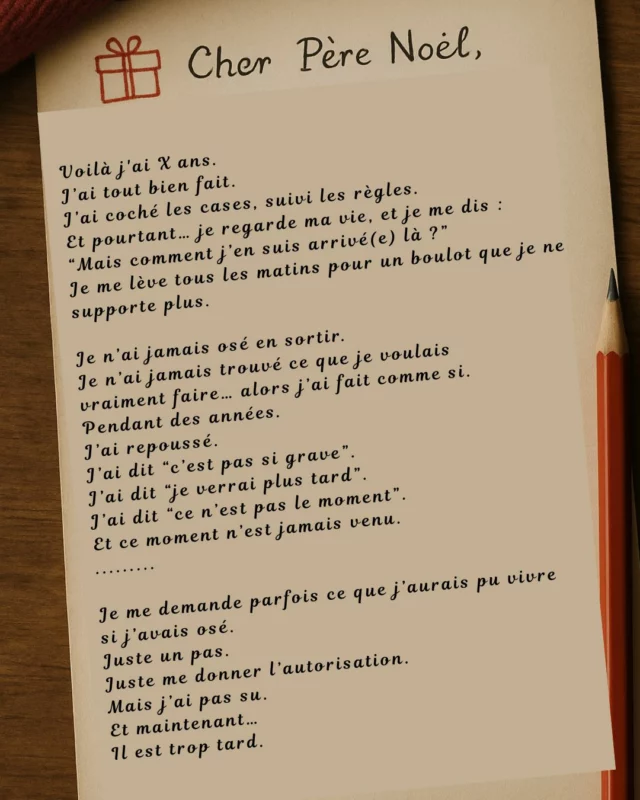 Cher Père Noël,
Voilà j'ai X ans.
J'ai tout bien fait.
J'ai coché les cases, suivi les règles.
Et pourtant... je regarde ma vie, et je me dis :
"Mais comment j'en suis arrivé(e) là ?"
Je me lève tous les matins pour un boulot que je ne
supporte plus.
Je n'ai jamais osé en sortir.
Je n'ai jamais trouvé ce que je voulais
vraiment faire... alors j'ai fait comme si.
Pendant des années.
J'ai repoussé.
J'ai dit "c'est pas si grave".
J'ai dit "je verrai plus tard".
J'ai dit "ce n'est pas le moment".
Et ce moment n'est jamais venu.
.........
Je me demande parfois ce que j'aurais pu vivre
si j'avais osé.
Juste un pas.
Juste me donner l'autorisation.
Mais j'ai pas su.
Et maintenant...
Il est trop tard.